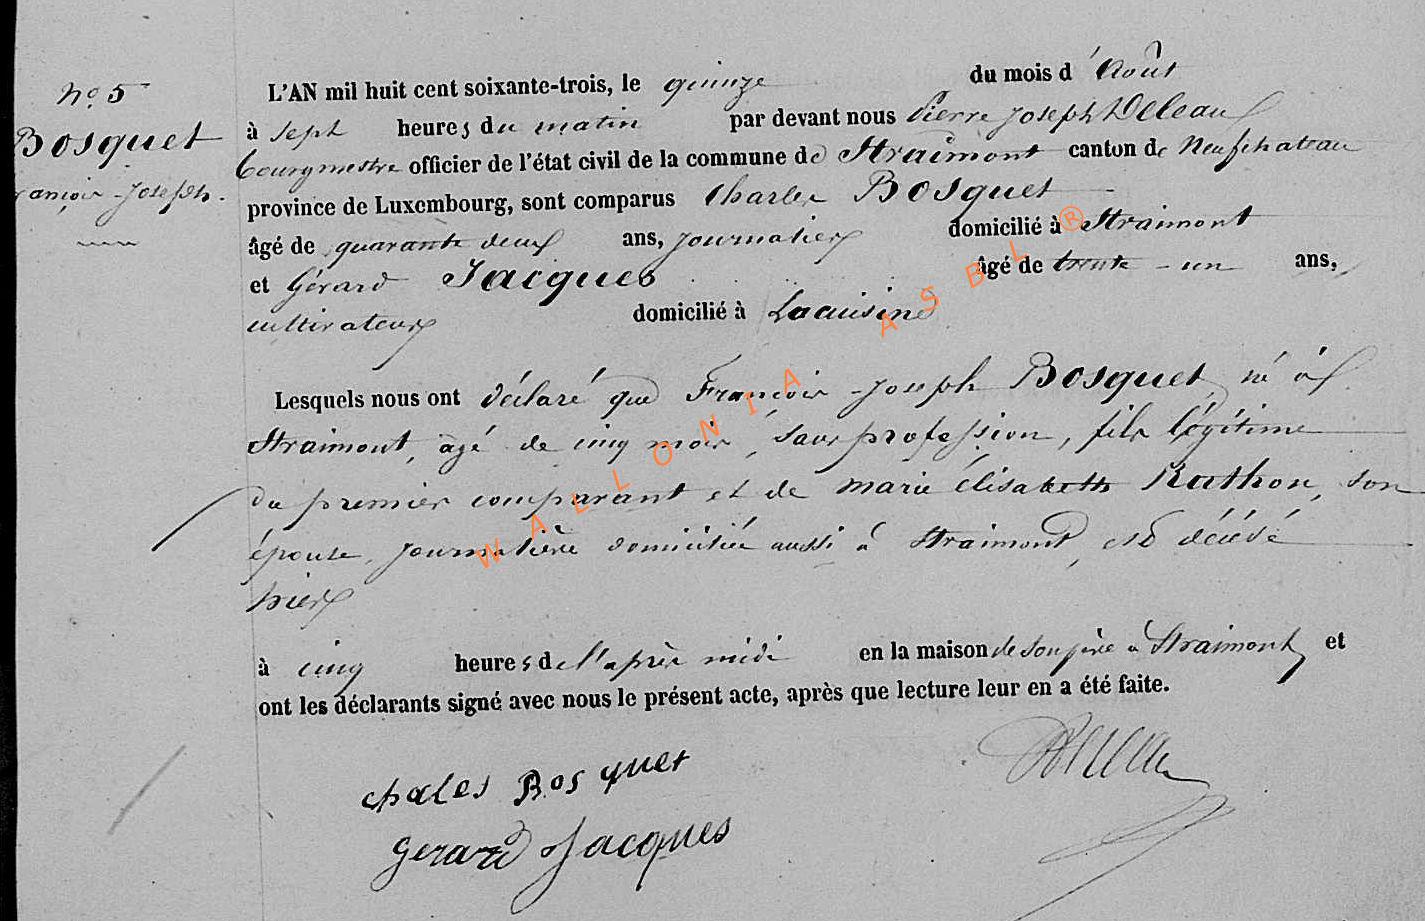 N° 5
Bosquet
François-Joseph.
L'AN mil huit cent soixante-trois, le quinze du mois d'Août
à sept heures du matin par devant nous Pierre Joseph Deleau
bourgmestre officier de l'état civil de la commune de Straimont canton de Neufchateau
province de Luxembourg, sont comparus Charles Bosquet
âgé de quarante deux ans, journalier domicilié à Straimont
et Gérard Jacques âgé de trente-un ans,
cultivateur domicilié à Lacuisine
Lesquels nous ont déclaré que François-Joseph Bosquet, né à
Straimont, âgé de cinq mois, sans profession, fils légitime
du premier comparant et de Marie Élisabeth Rathon, son
épouse, journalière domiciliée aussi à Straimont, est décédé
hier
à cinq heures de l'après midi en la maison de son père à Straimont, et
ont les déclarants signé avec nous le présent acte, après que lecture leur en a été faite.
Chales Bosquet
Gerard Jacques
WALLONIA ASBL ®